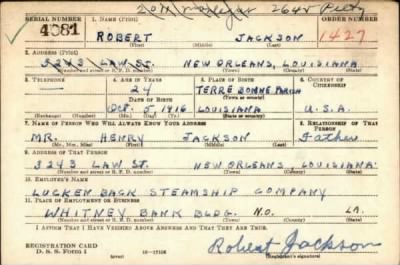 SERIAL NUMBER 1. NAME (Print) ORDER NUMBER
4081 ROBERT JACKSON 1427
(First) (Middle) (Last)
2. ADDRESS (Print)
3243 LAW ST. NEW ORLEANS, LOUISIANA
(Number and street or R. F. D. number) (Town) (County) (State)
3. TELEPHONE 4. AGE IN YEARS 5. PLACE OF BIRTH 6. COUNTRY OF CITIZENSHIP
24 TERRE BONNE PARISH
DATE OF BIRTH (Town or county)
OCT. 5 1916 LOUISIANA U.S.A.
(Exchange) (Number) (Mo.) (Day) (Yr.) (State or country)
7. NAME OF PERSON WHO WILL ALWAYS KNOW YOUR ADDRESS 8. RELATIONSHIP OF THAT PERSON
MR. HENRY JACKSON Father
(Mr., Mrs., Miss) (First) (Middle) (Last)
9. ADDRESS OF THAT PERSON
3243 LAW ST. NEW ORLEANS, LOUISIANA
(Number and street or R. F. D. number) (Town) (County) (State)
10. EMPLOYER'S NAME
LUCKEN BACK STEAMSHIP COMPANY
11. PLACE OF EMPLOYMENT OR BUSINESS
WHITNEY BANK BLDG. N.O. LA.
(Number and street or R. F. D. number) (Town) (County) (State)
I AFFIRM THAT I HAVE VERIFIED ABOVE ANSWERS AND THAT THEY ARE TRUE.
REGISTRATION CARD
D. S. S. Form 1 (over) 16—17105 Robert Jackson
(Registrant's signature)